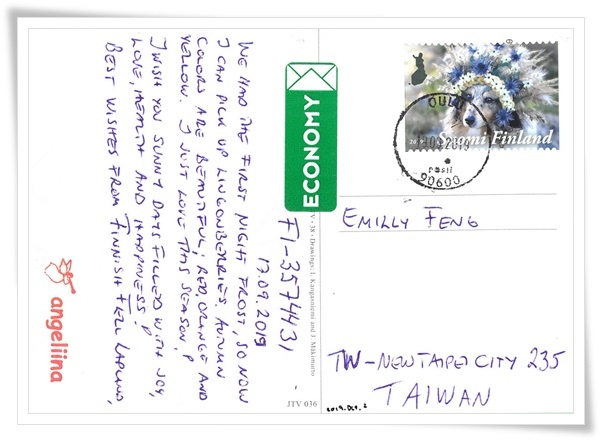 WE HAD THE FIRST NIGHT FROST, SO NOW
I CAN PICK UP LINGONBERRIES, AUTUMN
COLORS ARE BEAUTIFUL; RED, ORANGE AND
YELLOW. I JUST LOVE THIS SEASON. :P
I WISH YOU SUNNY DAYS FILLED WITH JOY,
LOVE, HEALTH AND HAPPINESS! :P
BEST WISHES FROM FINNISH FELL LAPLAND,
angeliina
17.09.2019
FI-3574431
ECONOMY
JTV - 38 - Drawings: I. Kangasniemi and J. Mäkimurto
JTV 036
Suomi Finland
OULU
2019
posti
90600
EMILLY FENG
TW-NEW TAIPEI CITY 235
TAIWAN
2019. Oct. 2